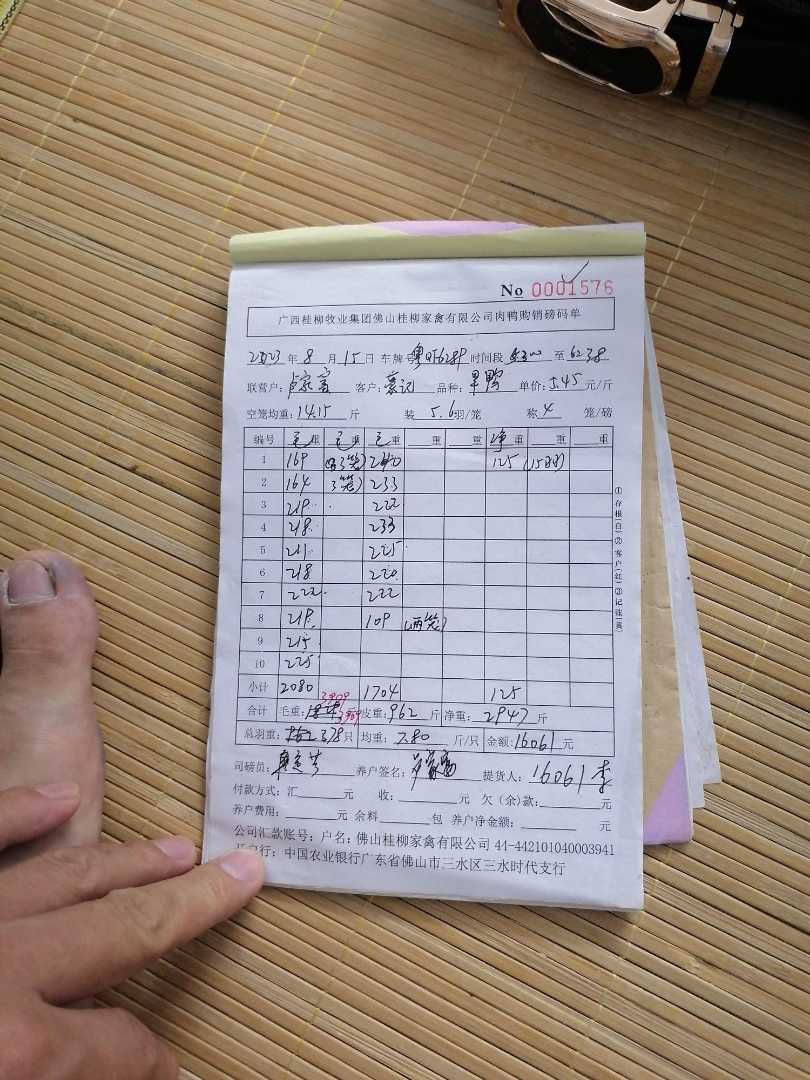 No 0001576
广西桂柳牧业集团佛山桂柳家禽有限公司肉鸭购销磅码单
2023年8月15日 车牌号 时间段 至6238
联营户: 客户: 品种: 单价:5.45元/斤
空笼均重:14.15斤 装5.6羽/笼 称4笼/磅
编号 毛重 毛重 毛重 重 重 净重 重 重
1 169 240 125
2 164 3笼) 233
3 219 222
4 218 233
5 211 225
6 218 220
7 222 222
8 219 109 (两笼)
9 215
10 225
小计 2080 1704 125
3909
合计 毛重: 3909斤 皮重:962斤 净重:2947斤
总羽重: 378只 均重:7.80斤/只 金额:16061元
司磅员: 养户签名: 提货人:16061 李
付款方式:汇 元 收: 元 欠(余)款: 元
养户费用: 元 余料 包 养户净金额: 元
公司汇款账号:户名:佛山桂柳家禽有限公司 44-442101040003941
开户行:中国农业银行广东省佛山市三水区三水时代支行
①存根(白)②客户(红)③记账(黄)